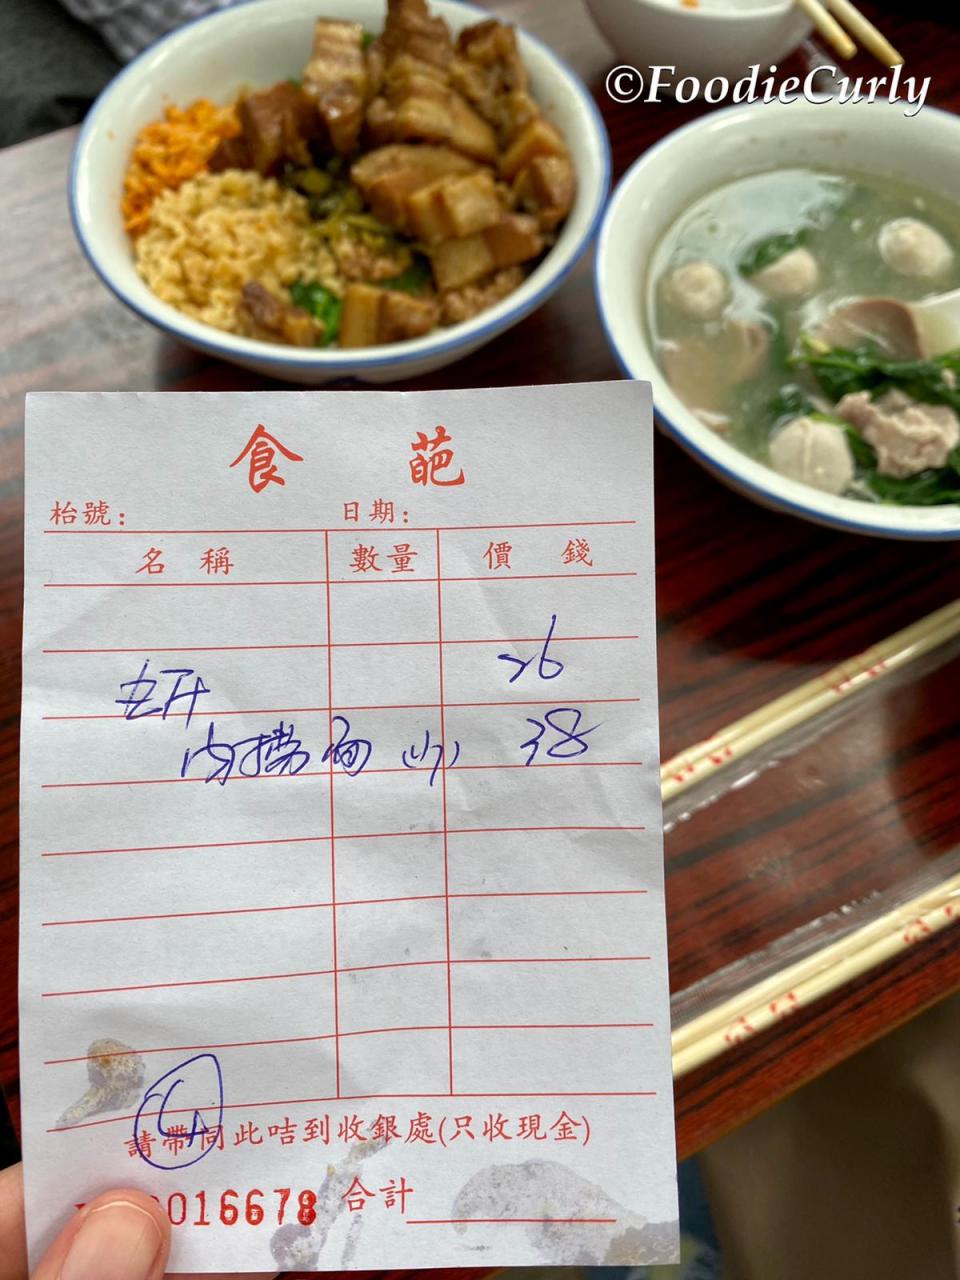 ©FoodieCurly
食葩
枱號： 日期：
名稱 數量 價錢
26
肉撈面 38
請帶同此咭到收銀處(只收現金)
016678 合計